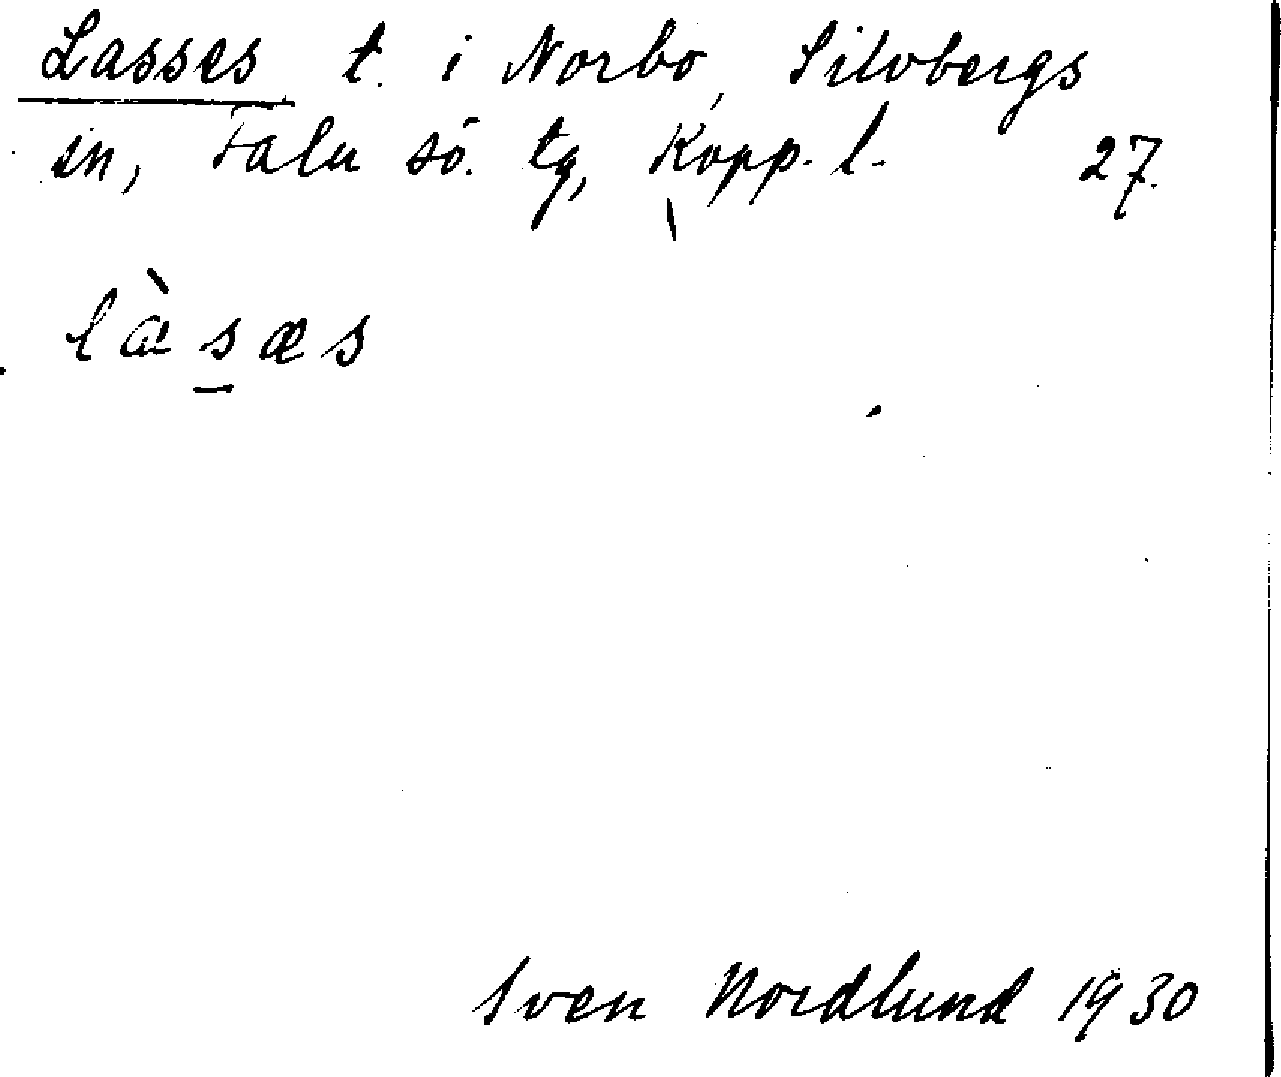 Lasses t. i Norbo, Silvbergs
sn, Falu sö. tg, Kopp. l. 27.
làsæs
Sven Nordlund 1930